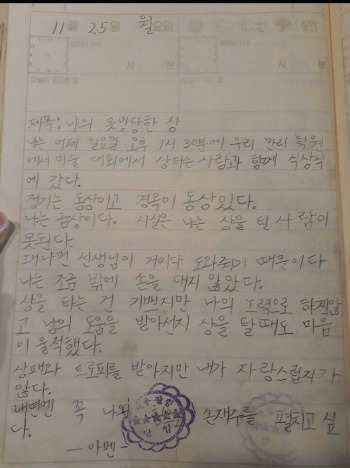 11월 25일 월요일
시 분 시 분
제목: 나의 못망당한 상
나는 어제 일요일 오후 1시 30분에 우리 관리 학원
에서 미술 대회에서 상타는 사람과 함께 식상식
에 갔다.
정기는 동상이고 경욱이 동상있다.
나는 금상이다. 사실은 나는 상을 탈 사람이
못된다.
돼냐면 선생님이 거이다 도와줘기 때문이다
나는 조금 밖에 손을 대지 않았다.
상을 타는 건 기쁘지만 나의 노력으로 하지않
고 남의 도움을 받아선지 상을 탈때도 마음
이 울적했다.
상패와 트로피를 받아지만 내가 자랑스럽지가
않다.
내년엔 꼭 나의 손재주를 펼치고 싶
다.
- 아멘 -